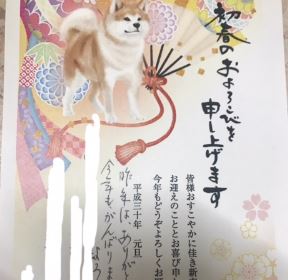 初春のおよろこびを
申し上げます
皆様おすこやかに佳き新
お迎えのこととお喜び申
今年もどうぞよろしくお
平成三十年 元旦
昨年は、ありが
今年もがんばりま